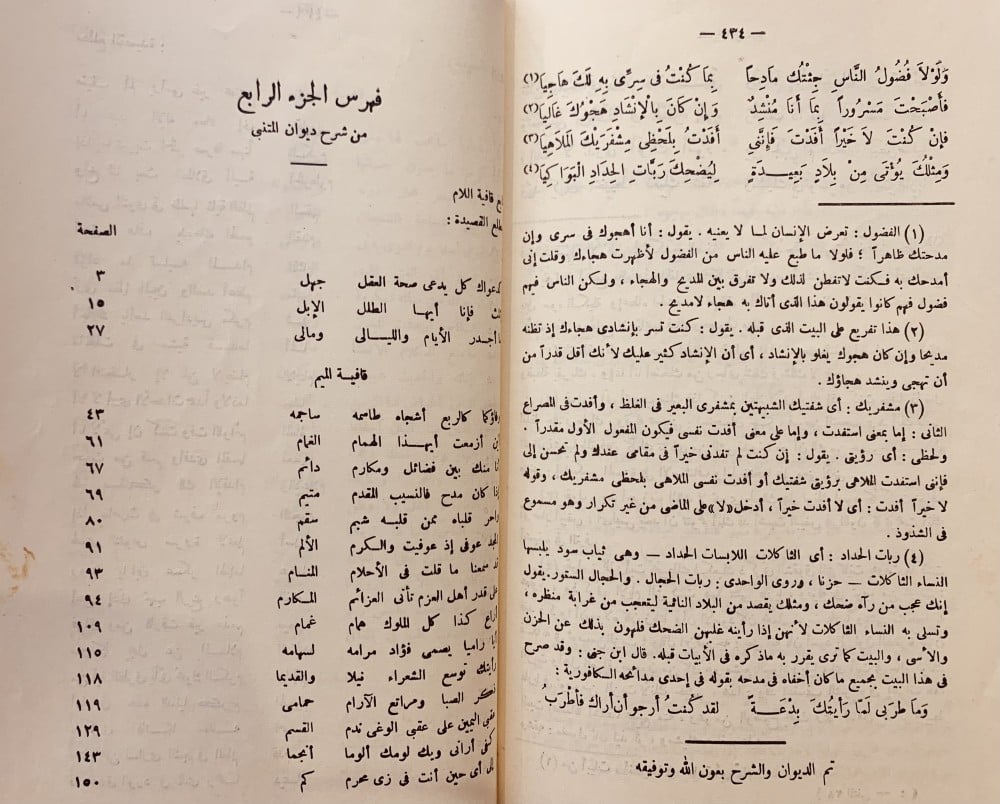 — ٤٣٤ —
وَلَوْلاَ فُضُولُ النَّاسِ جِئْتُك مادِحاً بِما كُنْتُ فى سِرِّى بِهِ لَكَ هَاجِيَا(١)
فَأَصْبَحْتَ مَسْرُوراً بِمَا أَنَا مُنْشِدٌ وَإِنْ كَانَ بِالْإِنْشَادِ هَجْوُكَ غَالِيَا(٢)
فَإِنْ كُنْتَ لاَ خَيْراً أَفَدْتَ فَإِنَّنِى أَفَدْتُ بِلَحْظِى مِشْفَرَيْكَ الْمَلاَهِيَا(٣)
وَمِثْلُكَ يُؤْتَى مِنْ بِلاَدٍ بَعِيدَةٍ لِيُضْحِكَ رَبَّاتِ الْحِدَادِ الْبَوَاكِيَا(٤)
(١) الفضول : تعرض الإنسان لما لا يعنيه . يقول : أنا أهجوك فى سرى وإن
مدحتك ظاهراً ؛ فلولا ما طبع عليه الناس من الفضول لأظهرت هجاءك وقلت إنى
أمدحك به فكنت لا تفطن لذلك ولا تفرق بين المديح والهجاء ، ولكن الناس فيهم
فضول فهم كانوا يقولون هذا الذى أتاك به هجاء لا مديح .
(٢) هذا تفريع على البيت الذى قبله . يقول : كنت تسر بإنشادى هجاءك إذ تظنه
مديحا وإن كان هجوك يغلو بالإنشاد ، أى أن الإنشاد كثير عليك لأنك أقل قدراً من
أن تهجى وينشد هجاؤك .
(٣) مشفريك : أى شفتيك الشبيهتين بمشفرى البعير فى الغلظ ، وأفدت فى المصراع
الثانى : إما بمعنى استفدت ، وإما على معنى أفدت نفسى فيكون المفعول الأول مقدراً .
ولحظى : أى رؤيتى . يقول : إن كنت لم تفدنى خيراً فى مقامى عندك ولم تحسن إلى
فإننى استفدت الملاهى برؤيتى شفتيك أو أفدت نفسى الملاهى بلحظى مشفريك ، وقوله
لا خيراً أفدت : أى لا أفدت خيراً ، أدخل «لا» على الماضى من غير تكرار وهو مسموع
فى الشذوذ .
(٤) ربات الحداد : أى الثاكلات اللابسات الحداد — وهى ثياب سود يلبسها
النساء الثاكلات — حزنا ، وروى الواحدى : ربات الحجال . والحجال الستور . يقول
إنك عجب من رآه ضحك ، ومثلك يقصد من البلاد النائية ليتعجب من غرابة منظره ،
وتسلى به النساء الثاكلات لأنهن إذا رأينه غلبهن الضحك فلهون بذلك عن الحزن
والأسى ، والبيت كما ترى يقرر به ما ذكره فى الأبيات قبله . قال ابن جنى : وقد صرح
فى هذا البيت بجميع ما كان أخفاه فى مدحه بقوله فى إحدى مدائحه الكافورية :
وَمَا طَرَبِى لَمَّا رَأَيْتُكَ بِدْعَةً لقد كُنتُ أرجو أن أراك فأطْرَبُ
تم الديوان والشرح بعون الله وتوفيقه
فهرس الجزء الرابع
من شرح ديوان المتنبى
قافية اللام
القصيدة : الصفحة
كدعواك كل يدعى صحة العقل جهل ٣
فإنا أيها الطلل الإبل ١٥
أجدر الأيام والليالى ومالى ٢٧
قافية الميم
وفاؤكما كالربع أشجاه طاسمه ساجمه ٤٣
أين أزمعت أيهذا الهمام الغمام ٦١
أنا منك بين فضائل ومكارم دائم ٦٧
إذا كان مدح فالنسيب المقدم متيم ٦٩
واحر قلباه ممن قلبه شبم سقم ٨٠
المجد عوفى إذ عوفيت والكرم الألم ٩١
قد سمعنا ما قلت فى الأحلام المنام ٩٣
على قدر أهل العزم تأتى العزائم المكارم ٩٤
أراع كذا كل الملوك همام غمام ١٠٩
أيا راميا يصمى فؤاد مرامه لسهامه ١١٥
رأيتك توسع الشعراء نيلا والقديما ١١٨
ذكر الصبا ومراتع الآرام حمامى ١١٩
عقبى اليمين على عقبى الوغى ندم القسم ١٢٩
كفى أرانى ويك لومك ألوما أنجما ١٤٣
إلى أى حين أنت فى زى محرم كم ١٥٠